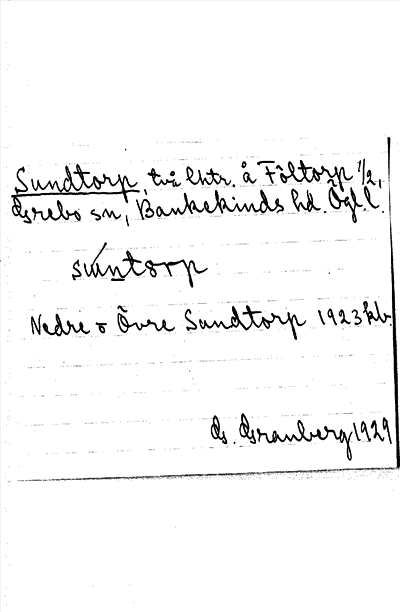 Sundtorp, två lhtr. å Föltorp 1/2,
Grebo sn, Bankekinds hd. Ögl. l.
suntorp
Nedre o Övre Sundtorp 1923 kb.
G. Granberg 1929